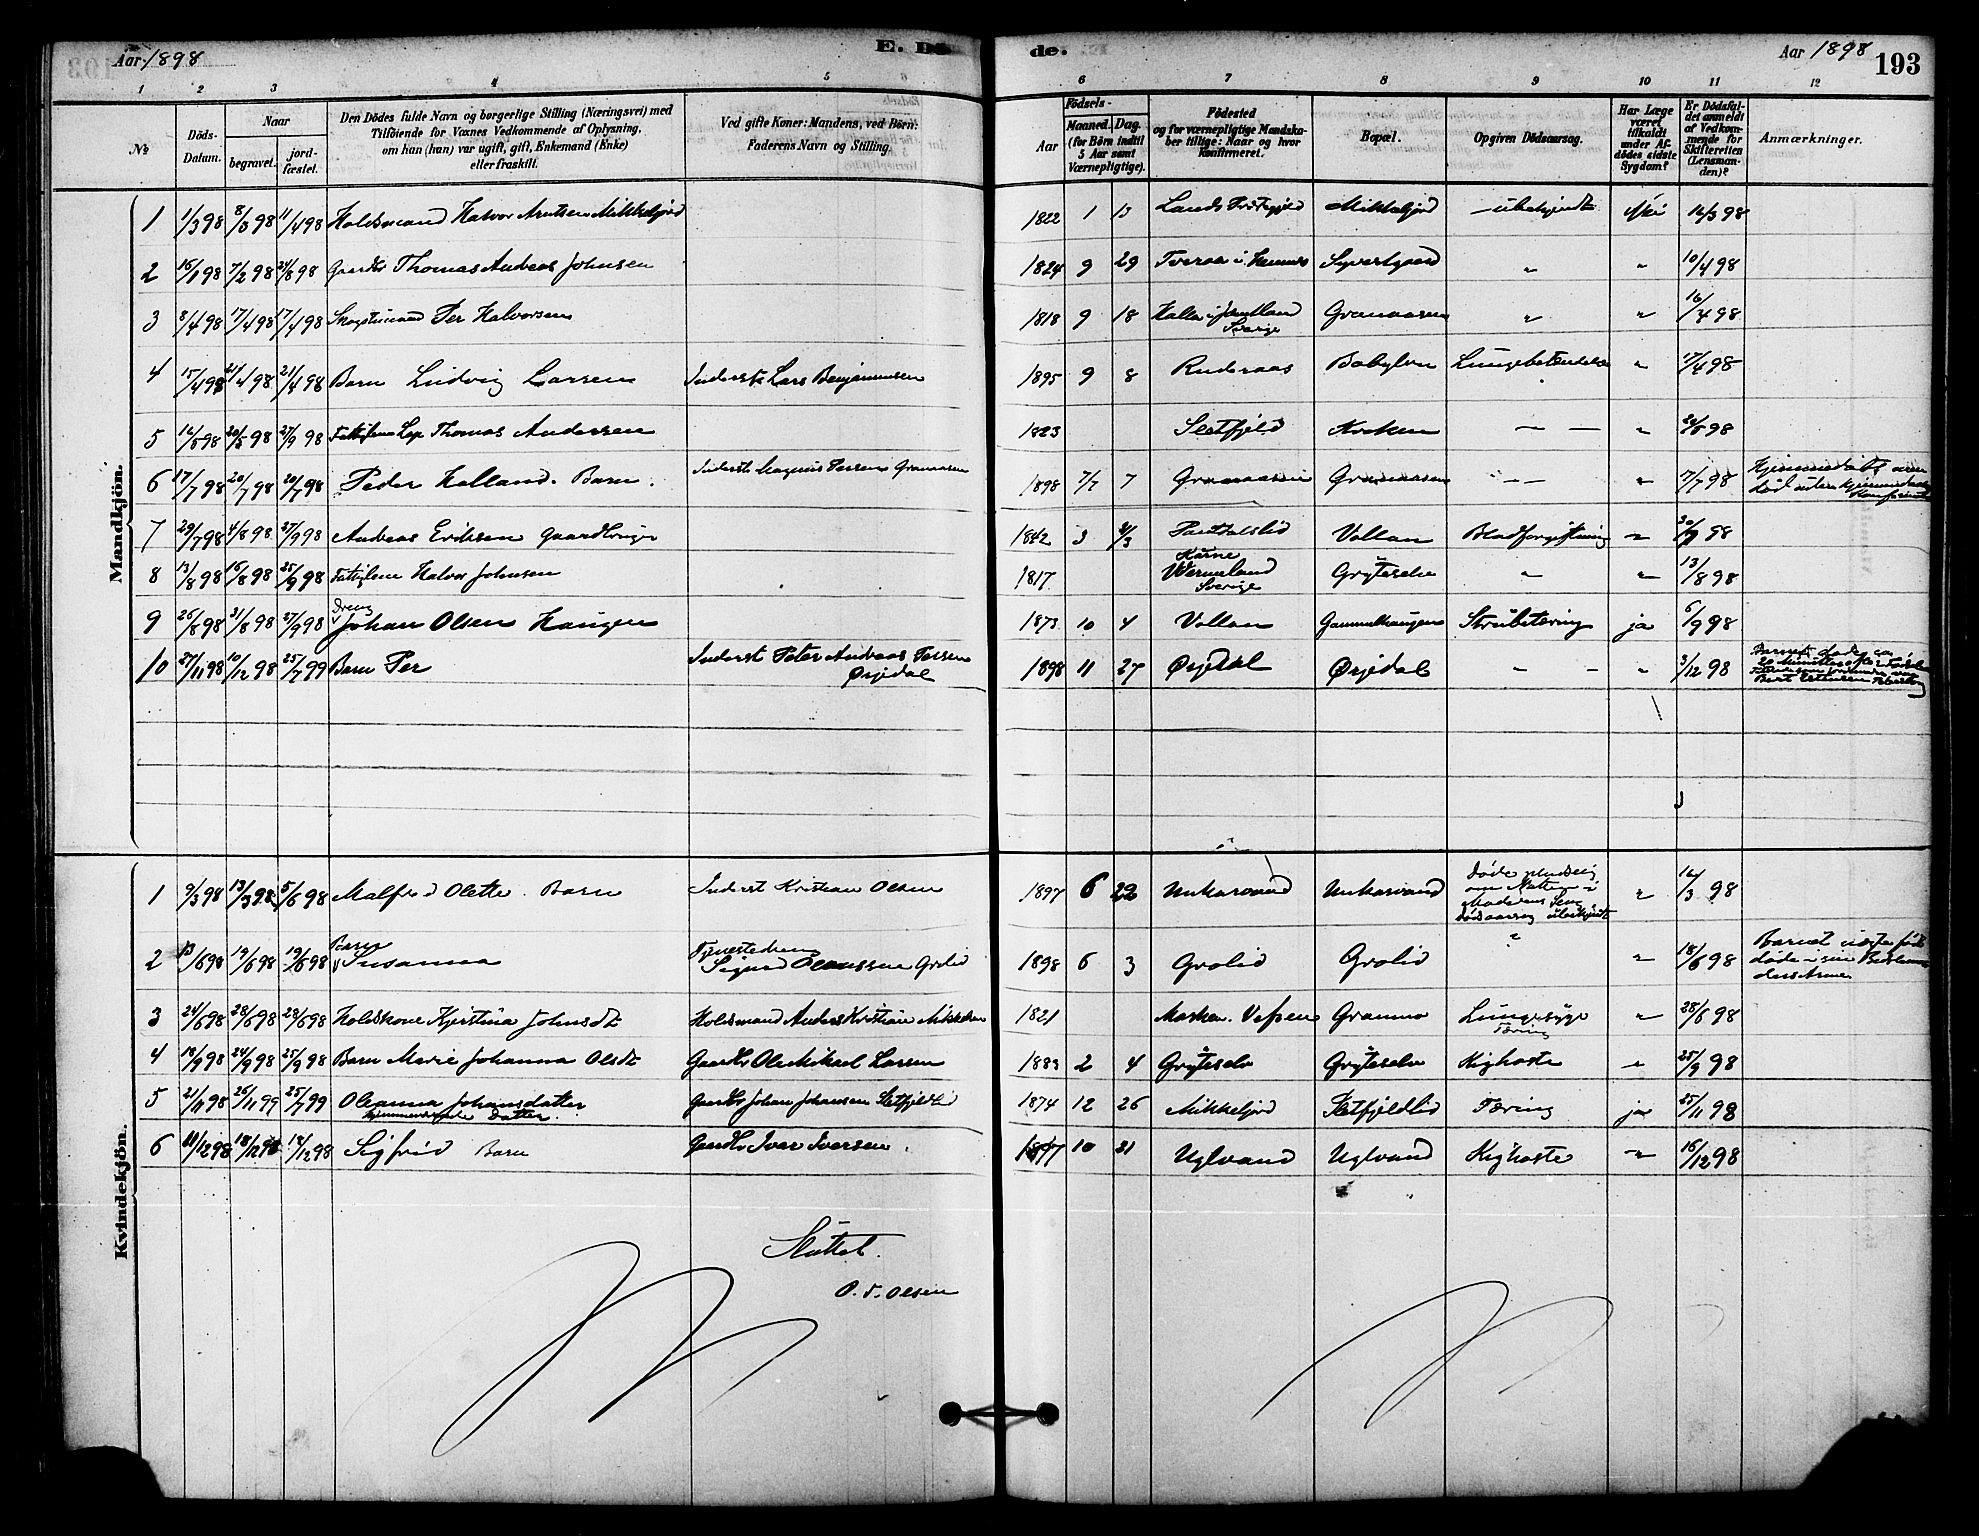 Aar 1898
E. Dö
de.
Aar 1898
193
1 2 3 4 5
6 7 8 9 10 11 12
№
Döds-Datum.
Naar
begravet. jordfæstet.
Den Dödes fulde Navn og borgerlige Stilling (Næringsvei) med
Tilföiende for Voxnes Vedkommende af Oplysning,
om han (hun) var ugift, gift, Enkemand (Enke)
eller fraskilt.
Ved gifte Koner: Mandens, ved Börn:
Faderens Navn og Stilling.
Födsels-
Aar
Maaned. Dag.
(for Börn indtil
5 Aar samt
Værnepligtige).
Födested
og for værnepligtige Mandska-
ber tillige: Naar og hvor
konfirmeret.
Bopæl.
Opgiven Dödsaarsag.
Har Læge
været
tilkaldt
under Af-
dödes sidste
Sygdom?
Er Dödsfal-
det anmeldt
af Vedkom-
mende for
Skifteretten
(Lensman-
den)?
Anmærkninger.
Mandkjön.
1 1/3 98 8/3 98 11/4 98 Holdsmand Halvor Arntsen Mikkeljord 1822 1 13 Lands Mikkeljord ubekjendt 12/3 98
2 16/1 98 7/2 98 24/8 98 Gaardbr Thomas Andreas Johnsen 1824 9 29 Tveraa i Hemnes " " 10/4 98
3 8/4 98 17/4 98 17/4 98 Per Halvorsen 1818 9 18 Granaasen " " 16/4 98
Sverige
4 15/4 98 21/4 98 21/4 98 Barn Ludvig Larsen Inderst Lars Benjaminsen 1895 9 8 Ruderaas Babylon Lungebetændelse " 17/4 98
5 16/5 98 20/5 98 27/9 98 Lap Thomas Andersen 1823 Kroken — — " 20/5 98
6 17/7 98 20/7 98 20/7 98 Peder Holland. Barn. Inderst Magnus Persen Granaasen 1898 7/7 7 Granaasen Granaasen — " 17/7 98 Hjemmedøbt
7 29/7 98 4/8 98 27/9 98 Andreas Eriksen Gaardbruger 1842 3 31/3 Vollan Blodforgiftning " 98
8 13/8 98 15/8 98 25/9 98 Halvor Johnsen 1817 Wermeland Gryteselv " " 13/8 98
Sverige
9 26/8 98 31/8 98 27/9 98 Dreng Johan Olsen Haugen 1873 10 4 Vollan Gammelhaugen Strubetæring ja 6/9 98
10 27/11 98 10/12 98 25/7 99 Barn Per Inderst Peter Andreas Persen 1898 11 27 Ørjedal Ørjedal - - " 3/12 98 Barnet døde ca
Ørjedal
20 Minutter efter Fødsel
Kvindekjön.
1 9/3 98 13/3 98 5/6 98 Malfred Olette. Barn Inderst Kristian Olsen 1897 6 22 Unkarvand Unkarvand døde pludselig
om Natten i
Moderens Seng
Dødsaarsag ubekjendt " 12/3 98
2 13/6 98 19/6 98 19/6 98 Barn Susanna Tjenestedreng
Sigurd Grolid 1898 6 3 Grolid Grolid " " 18/6 98 Barnet
døde i sin
Arme
3 24/6 98 28/6 98 28/6 98 Holdskone Kjerstina Johnsdt Holdsmand Anders Kristian Mikkelsen 1821 Vefsen Granmo Lungesyge " 28/6 98
Tæring
4 18/9 98 24/9 98 25/9 98 Barn Marie Johanna Olsdt Gaardbr Ole Mikael Larsen 1883 2 4 Gryteselv Gryteselv Kighoste " 25/9 98
5 21/11 98 26/11 99 25/7 99 Oleanna Johansdatter Gaardbr Johan Johansen Sletfjeldlid 1874 12 26 Mikkeljord Sletfjeldlid Tæring ja 25/11 98
Hjemmeværende Datter.
6 11/12 98 18/12 98 18/12 98 Sigfrid Barn Gaardbr Ivar Iversen 1897 10 21 Uglvand Uglvand Kighoste " 16/12 98
Sluttet.
O. T. Olsen